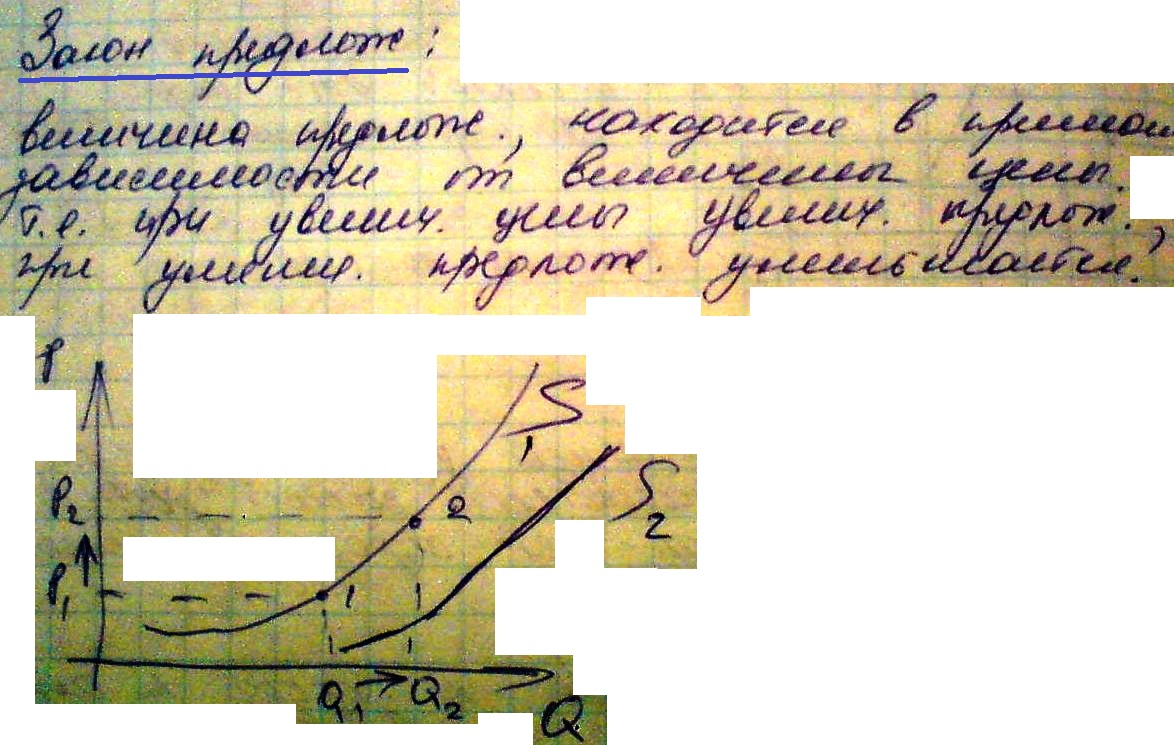 Закон предлож:
величина предлож., находится в прямой
зависимости от величины цены.
Т.е. при увелич. цены увелич. предлож.,
при уменьш. предлож. уменьшается.
P
S1
P2
2
S2
P1
1
Q1 → Q2
Q